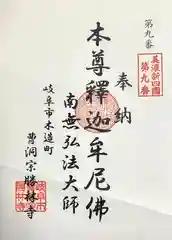 第九番
美濃新四國
第九番
奉納
本尊釋迦牟尼佛
南無弘法大師
岐阜市木造町
曹洞宗勝林寺